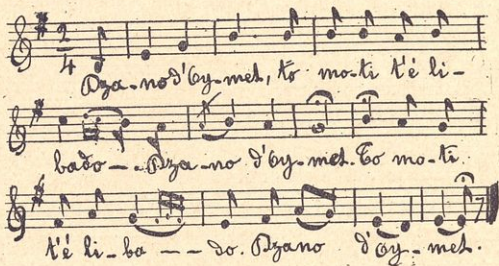 2
4
Dza-no d'Ey-met, to mo-ti t'é li-
bado-. Dza-no d'Ey-met. To mo-ti
t'é li-ba--do. Dzano d'Ey-met.